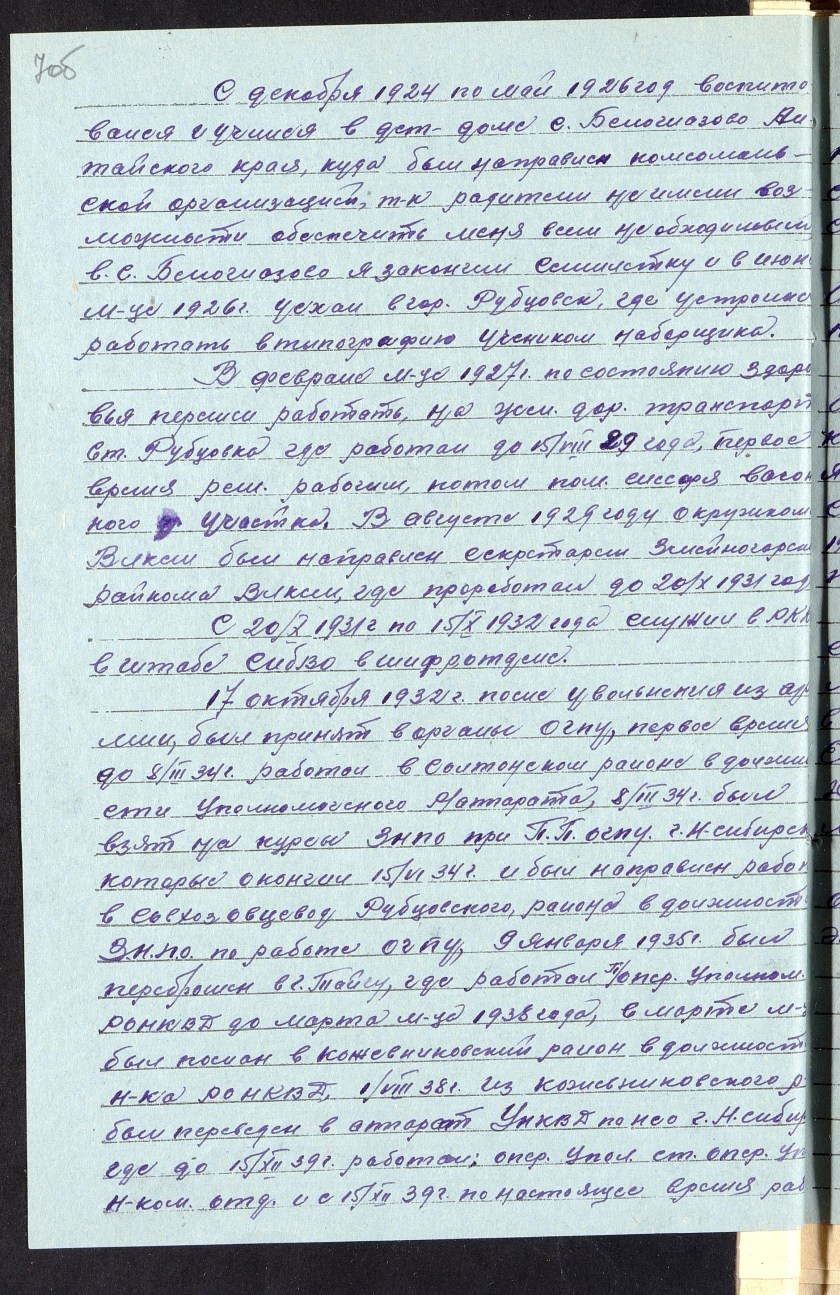 70б
С декабря 1924 по май 1926 год воспито
вался и учился в дет-доме с. Белоглазово Ал
тайского края, куда был направлен комсомоль-
ской организацией, т-к родители не имели воз-
можности обеспечить меня всем необходимым
в. с. Белоглазово я закончил семилетку и в июн
м-це 1926г. уехал в гор. Рубцовск, где устроился
работать в типографию учеником наборщика.
В феврале м-це 1927г. по состоянию здоро
вья перешел работать, на жел. дор. транспорт
ст. Рубцовка где работал до 15/VIII 29 года, первое
время рем. рабочим, потом пом. слесаря вагон
ного участка. В августе 1929 году окружком
ВЛКСМ был направлен секретарем Змейногорск
райкома ВЛКСМ, где проработал до 20/X 1931 год
С 20/X 1931г по 15/X 1932 года служил в РКК
в штабе СибВО в шифротделе.
17 октября 1932г. после увольнения из ар
мии, был принят в органы ОГПУ, первое время
до 8/III 34г. работал в Солтонском районе в должно
сти Уполномоченного Р/аппарата, 8/III 34г. был
взят на курсы ЗНПО при П.П. ОГПУ. г. Н-сибирск
которые окончил 15/VI 34г. и был направлен работ
в Совхоз овцевод Рубцовского, района в должность
З.н.п.о. по работе ОГПУ, 9 января 1935г. был
переброшен в г. Тайгу, где работал П/опер. Уполном.
РОНКВД до марта м-ца 1938 года, в марте м-ц
был послан в Кожевниковский район в должность
Н-ка РОНКВД, 1/VIII 38г. из Кожевниковского р-
был переведен в аппарат УНКВД по НСО г. Н.сибир
где до 15/XII 39г. работал: опер. Упол. ст. опер. Уп
Н-ком. отд. и с 15/XII 39г. по настоящее время раб